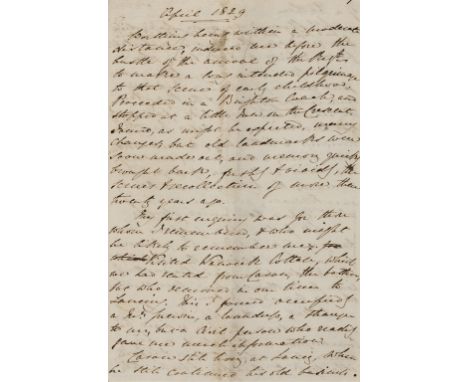 April 1829
being within a moderate
distance, induced me before the
bustle of the arrival of the Regt
to make a long intended pilgrimage
to that scene of early childhood.
Proceeded in a Brighton Coach, and
stopped at a little Inn on the Crescent.
Found, as might be expected, many
changes, but old landmarks were
soon made out, and memory quickly
brought back, fresh & vividly, the
scenes & recollection of more than
twenty years ago.
My first enquiry was for those
whom I remembered, & who might
be likely to remember me.
Visited Cottage, which
we had rented from Carson, the
who removed in our time to
Lancing. His house occupied
a Mr. a stranger
to me, but a civil person who readily
gave me much information.
Carson still lives at Lancing where
he still continues his old business.